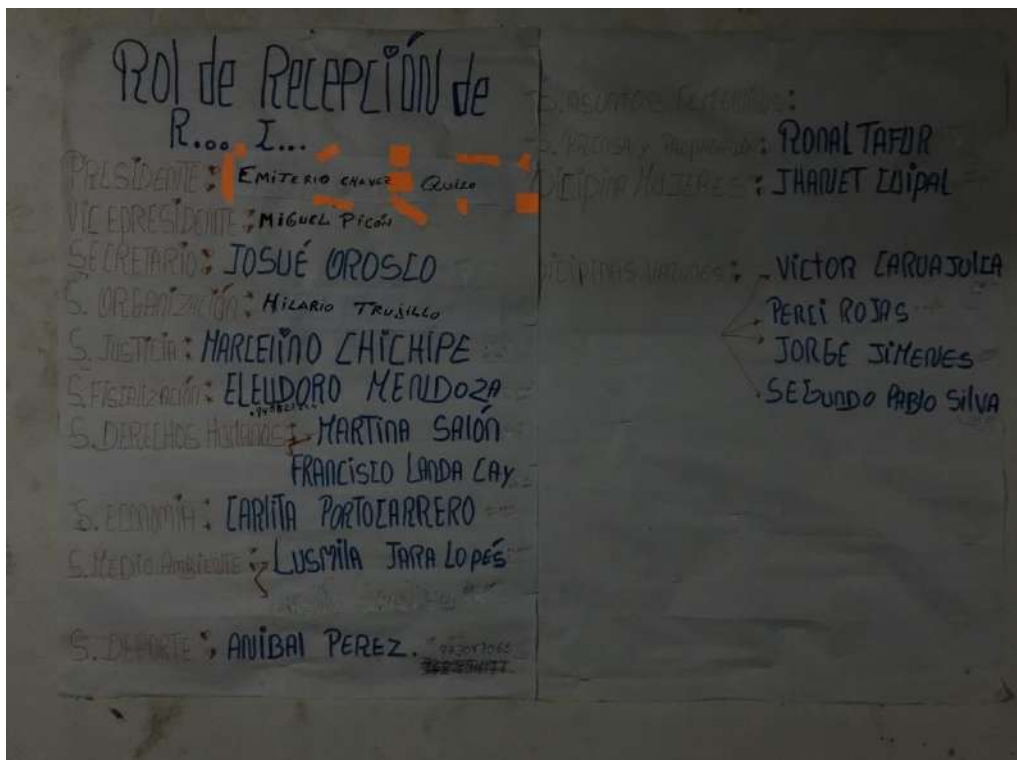 Rol de RECEPCIÓN de
R... I...
PRESIDENTE: EMITERIO CHAVEZ QUIZO
VICEPRESIDENTE: MIGUEL PICÓN
SECRETARIO: JOSUÉ OROSCO
S. ORGANIZACIÓN: HILARIO TRUJILLO
S. JUSTICIA: MARCELINO CHICHIPE
S. FISCALIZACIÓN: ELEUDORO MENDOZA
S. DERECHOS HUMANOS: MARTINA SALÓN
FRANCISCO LANDA CAY
S. ECONOMÍA: CARLITA PORTOCARRERO
S. MEDIO AMBIENTE: LUSMILA JARA LOPÉS
S. DEPORTE: ANIBAL PEREZ.
S. ASUNTOS FEMENINOS:
S. PRENSA y Propaganda: RONAL TAFUR
DICIPLINA MUJERES: JHANET COIPAL
DICIPLINAS VARONES: VICTOR CARUAJULCA
PERCI ROJAS
JORGE JIMENES
SEGUNDO PABLO SILVA